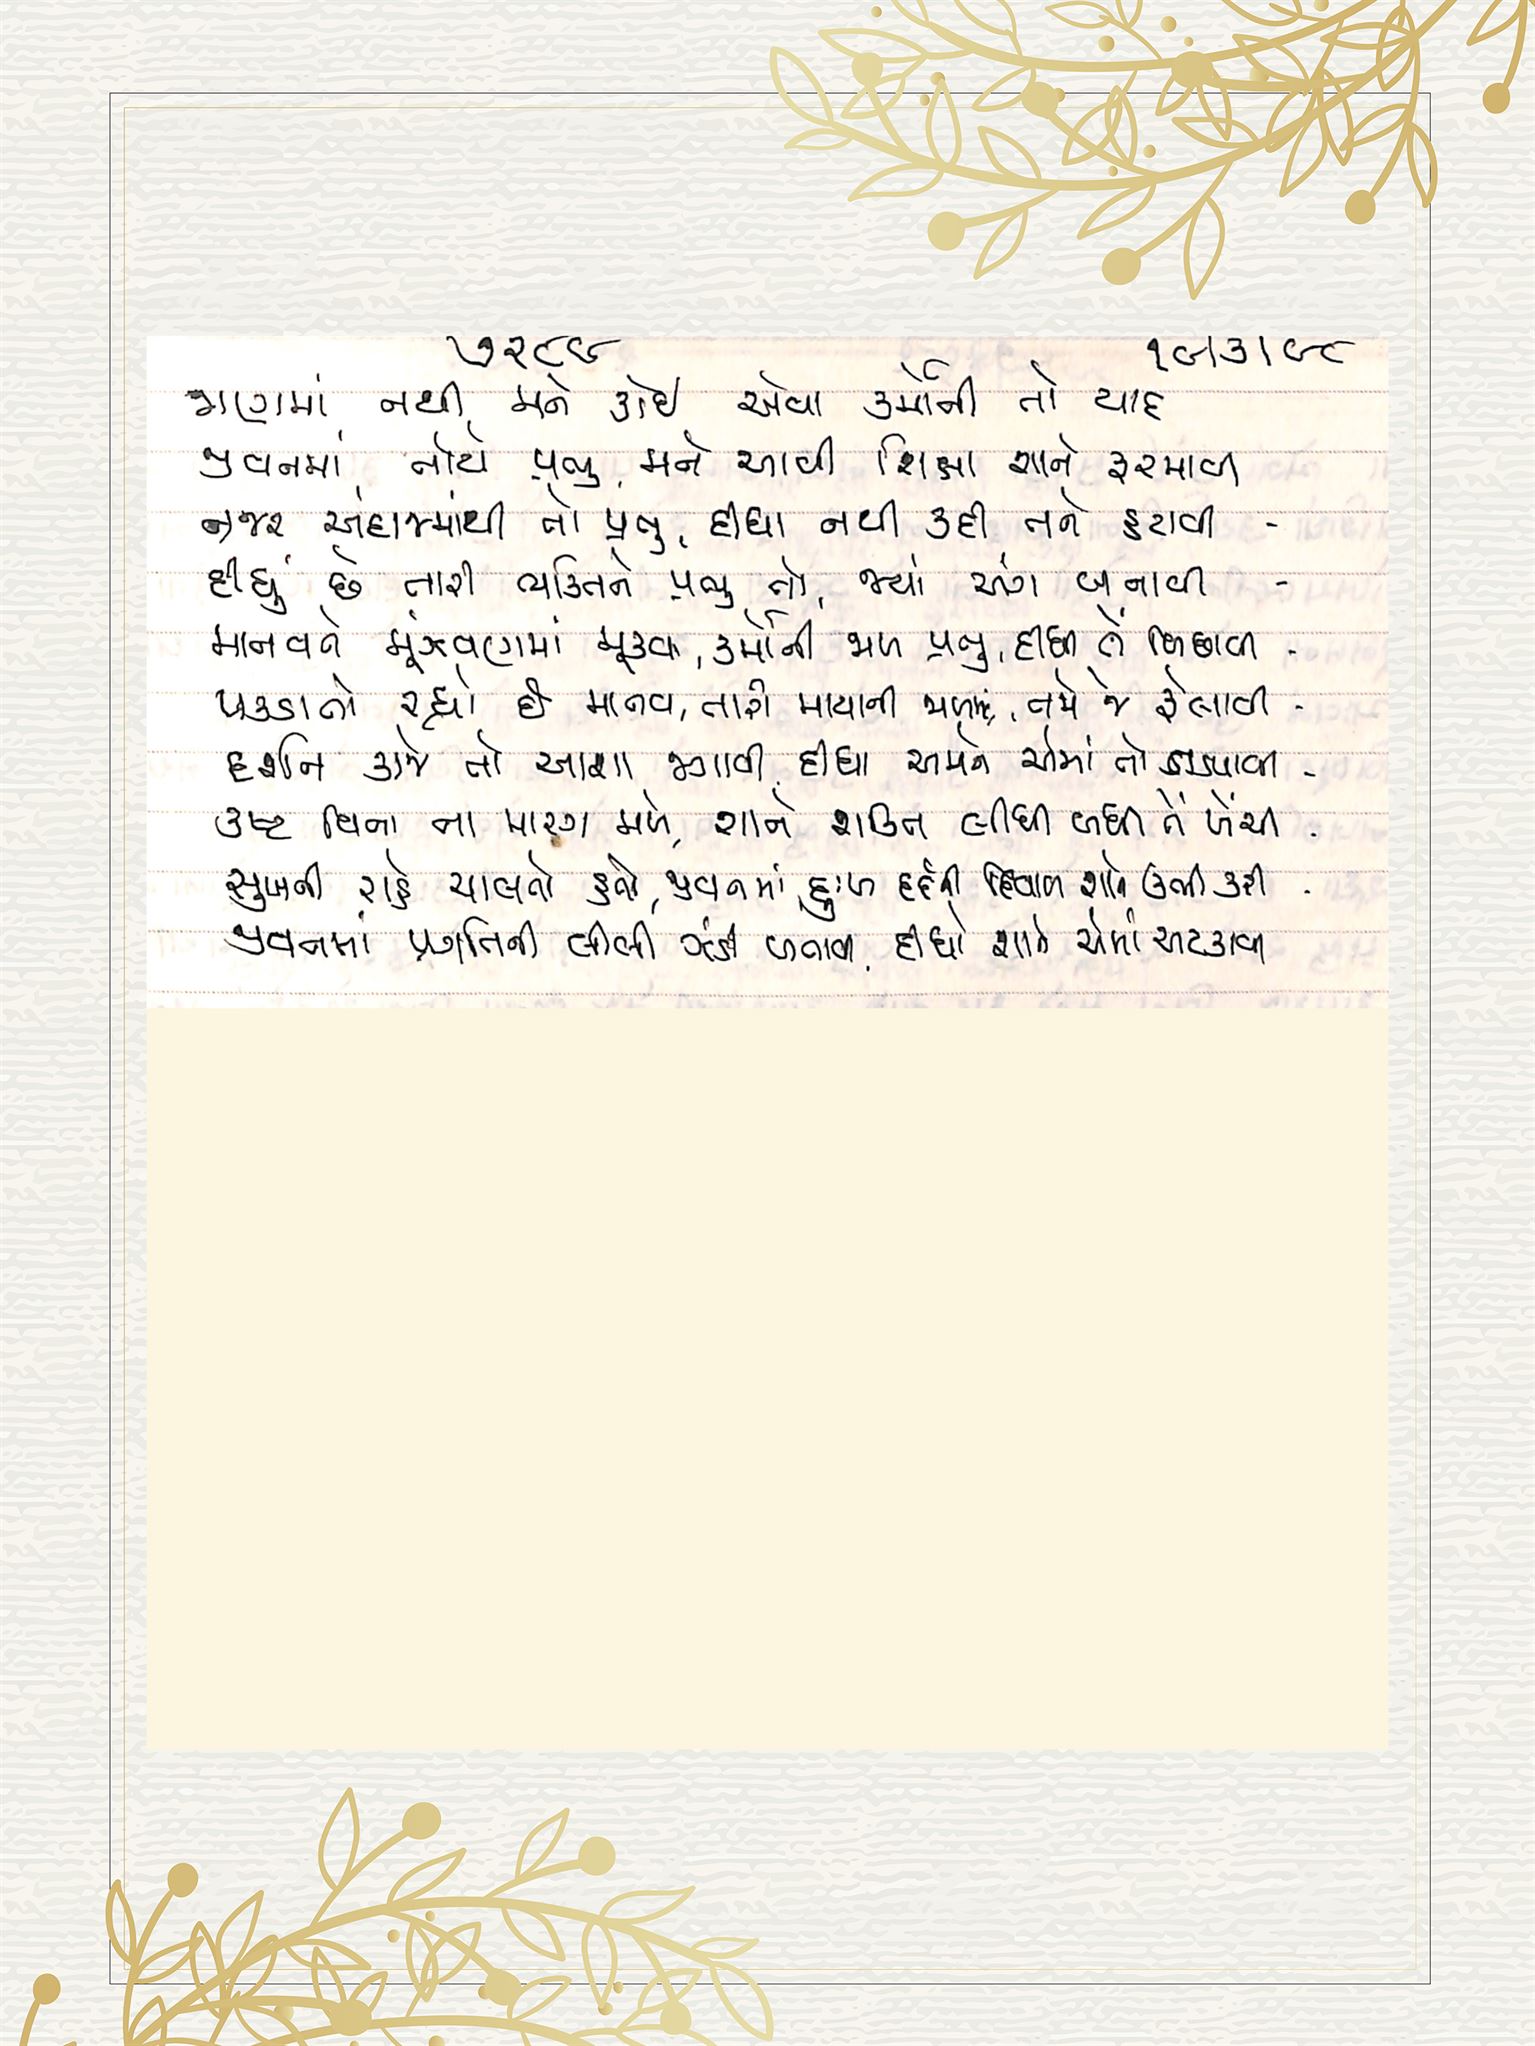 ૭૨૮૬ ૧૯।૩।૯૮
જાણમાં નથી, મને કોઈ એવા કર્મોની તો યાદ
જીવનમાં, તોયે પ્રભુ, મને આવી શિક્ષા શાને ફરમાવી
નજર અંદાજમાંથી તો પ્રભુ, દીધા નથી કદી તને હટાવી -
દીધું છે તારી વ્યક્તિને પ્રભુ તો, જ્યાં અંગ બનાવી -
માનવને મૂંઝવણમાં મૂકવા, કર્મોની જાળ પ્રભુ, દીધી તેં બિછાવી -
પકડાતો રહ્યો છે માનવ, તારી માયાની જાળમાં, તમે જે ફેલાવી -
દર્શન કાજે તો આશા જગાવી, દીધા અમને એમાં તો તડપાવી -
કષ્ટ વિના ના મારગ મળે, શાને શક્તિ લીધી બધી તેં ખેંચી -
સુખની રાહે ચાલતો હતો, જીવનમાં, દુઃખ દર્દની દિવાલ શાને ઊભી કરી -
જીવનમાં પ્રગતિની લીલી ઝંડી બતાવી, દીધો શાને એમાં અટકાવી